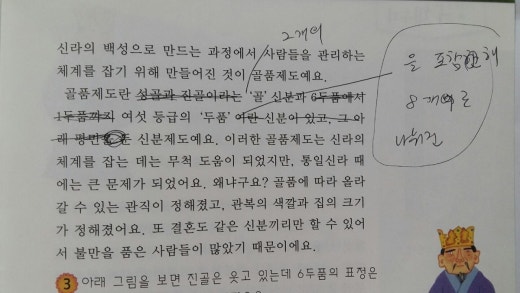 2개의
신라의 백성으로 만드는 과정에서 사람들을 관리하는
체계를 잡기 위해 만들어진 것이 골품제도예요.
골품제도란 성골과 진골이라는 '골' 신분과 6두품에서
1두품까지 여섯 등급의 '두품'이란 신분이 있고, 그 아
래 평민을 둔 신분제도예요. 이러한 골품제도는 신라의
체계를 잡는 데는 무척 도움이 되었지만, 통일신라 때
에는 큰 문제가 되었어요. 왜냐구요? 골품에 따라 올라
갈 수 있는 관직이 정해졌고, 관복의 색깔과 집의 크기
가 정해졌어요. 또 결혼도 같은 신분끼리만 할 수 있어
서 불만을 품은 사람들이 많았기 때문이에요.
을 포함해
8개로
나눠진
3 아래 그림을 보면 진골은 웃고 있는데 6두품의 표정은